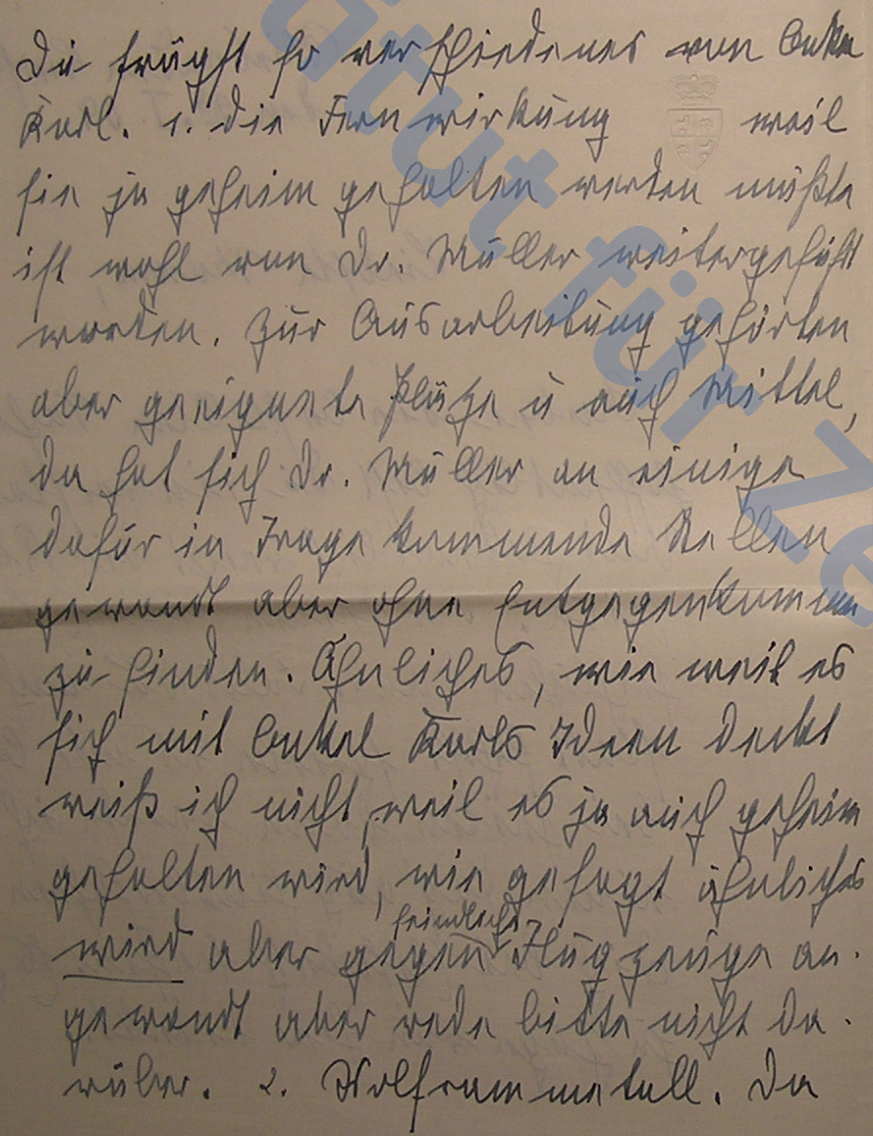 Du frägst so verschiedenes von Onkel
Karl. 1. die Fernwirkung weil
sie ja geheim gehalten werden mußte
ist wohl von Dr. Müller weitergeführt
worden. Zur Ausarbeitung gehörten
aber geeignete Plätze u auch Mittel,
da hat sich Dr. Müller an einige
dafür in Frage kommende Stellen
gewandt aber ohne Entgegenkommen
zu finden. Ähnliches, wie weit es
sich mit Onkel Karls Ideen deckt
weiß ich nicht, weil es ja auch geheim
gehalten wird, wie gesagt ähnliches
feindliche
wird aber gegen Flugzeuge an-
gewandt aber rede bitte nicht da-
rüber. 2. Wolframmetall. Da